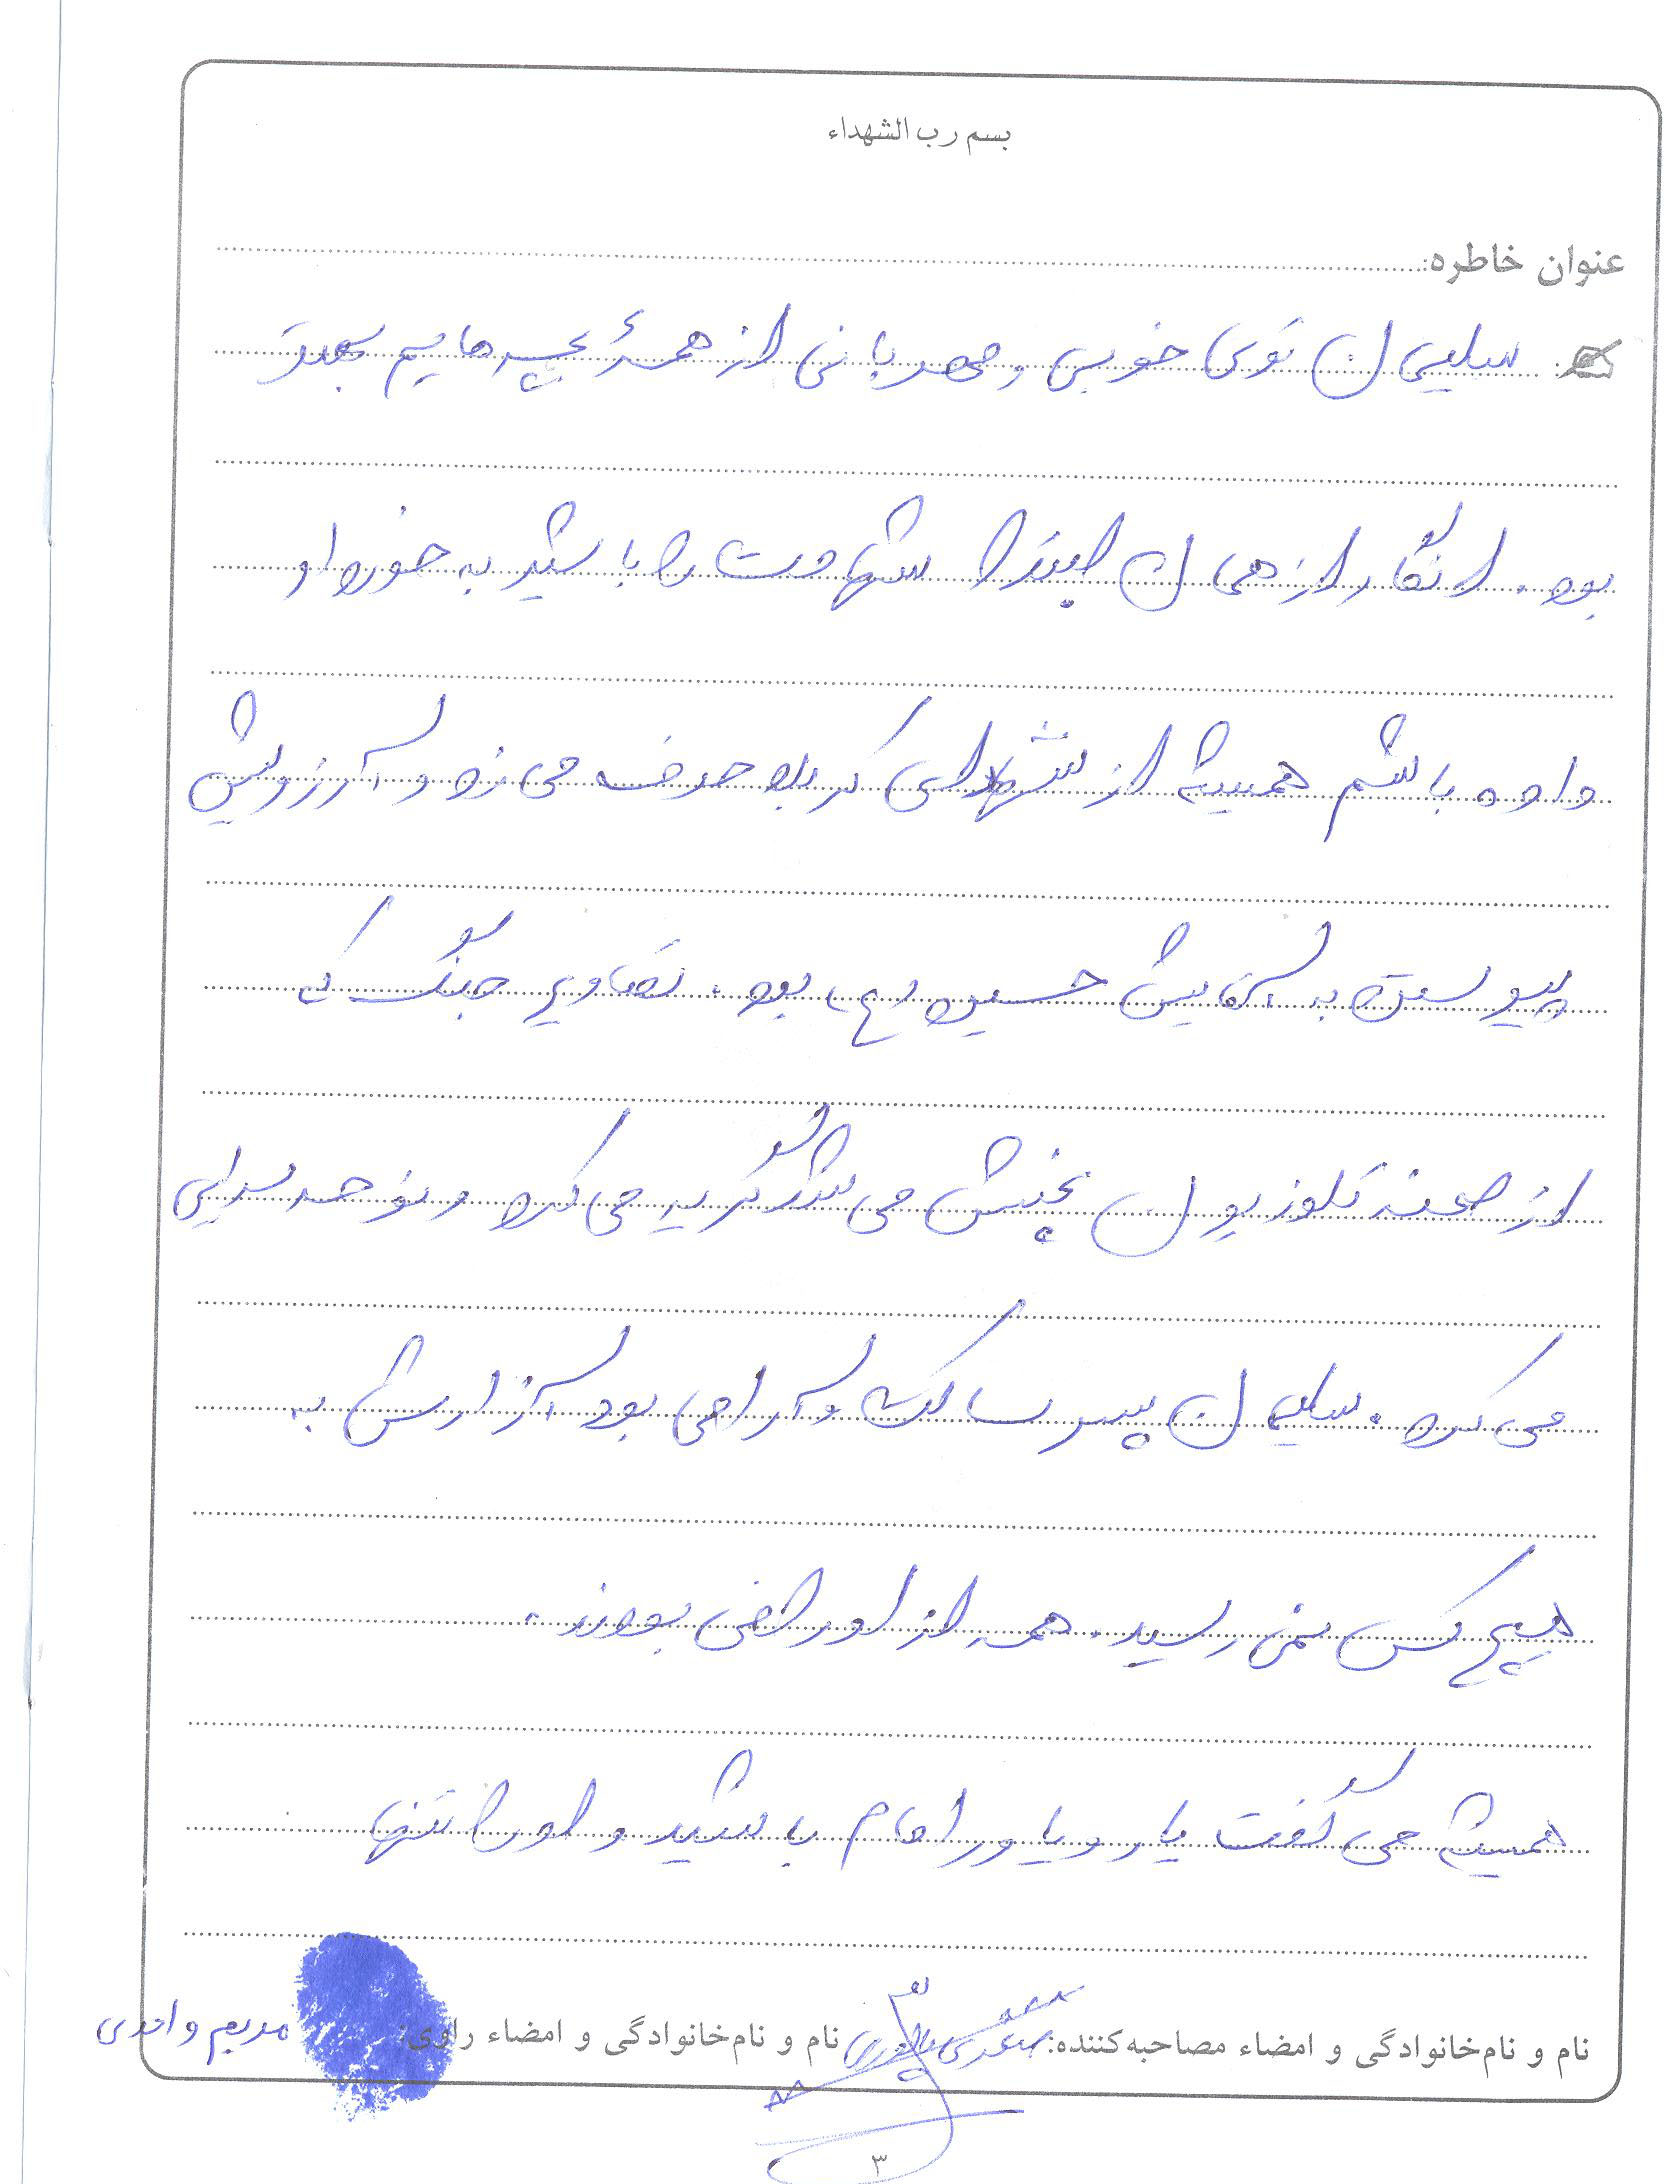 بسم رب الشهداء
عنوان خاطره:
سلیمان توی خوبی و مهربانی از همهٔ بچه هایم بهتر
بود. انگار از همان ابتدا شهادت را با شیر به خورد او
داده باشم همیشه از شهدای کربلا حرف می زد و آرزویش
پیوستن به آقایش حسین (ع) بود. تصاویر جنگ که
از صحنه تلوزیون پخش می شد گریه می کرد و نوحه سرایی
می کرد. سلیمان پسر ساکت و آرامی بود آزارش به
هیچ کس نمی رسید. همه از او راضی بودند.
همیشه می گفت یار و یاور امام باشید و او را تنها
نام و نام خانوادگی و امضاء مصاحبه کننده: نام و نام خانوادگی و امضاء راوی: مریم واحدی
۳